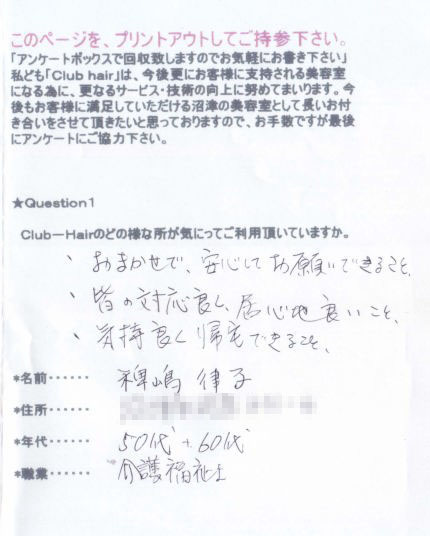 このページを、プリントアウトしてご持参下さい。
「アンケートボックスで回収致しますのでお気軽にお書き下さい」
私ども「Club hair」は、今後更にお客様に支持される美容室
になる為に、更なるサービス・技術の向上に努めてまいります。今
後もお客様に満足していただける沼津の美容室として長いお付
き合いをさせて頂きたいと思っておりますので、お手数ですが最後
にアンケートにご協力下さい。
★Question1
Club－Hairのどの様な所が気にってご利用頂いていますか。
、おまかせで、安心してお願いできること、
、皆の対応良く、居心地良いこと、
、気持良く帰宅できること、
*名前‥‥‥ 稗嶋 律子
*住所‥‥‥
*年代‥‥‥ 50代+60代
*職業‥‥‥ 介護福祉士